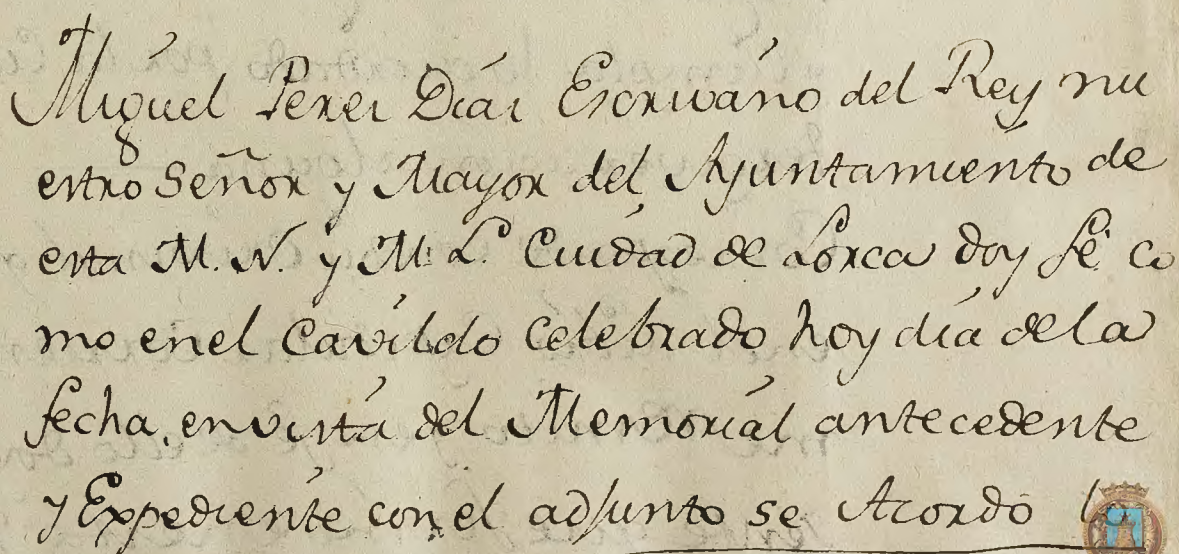 Miguel Perez Diaz Escrivano del Rey nu
estro Señor y Mayor del Ayuntamiento de
esta M. N. y M. L. Ciudad de Lorca doy fé co
mo enel Cavildo Celebrado hoy dia dela
fecha, envista del Memorial antecedente
y Expediente con el adjunto se Acordo